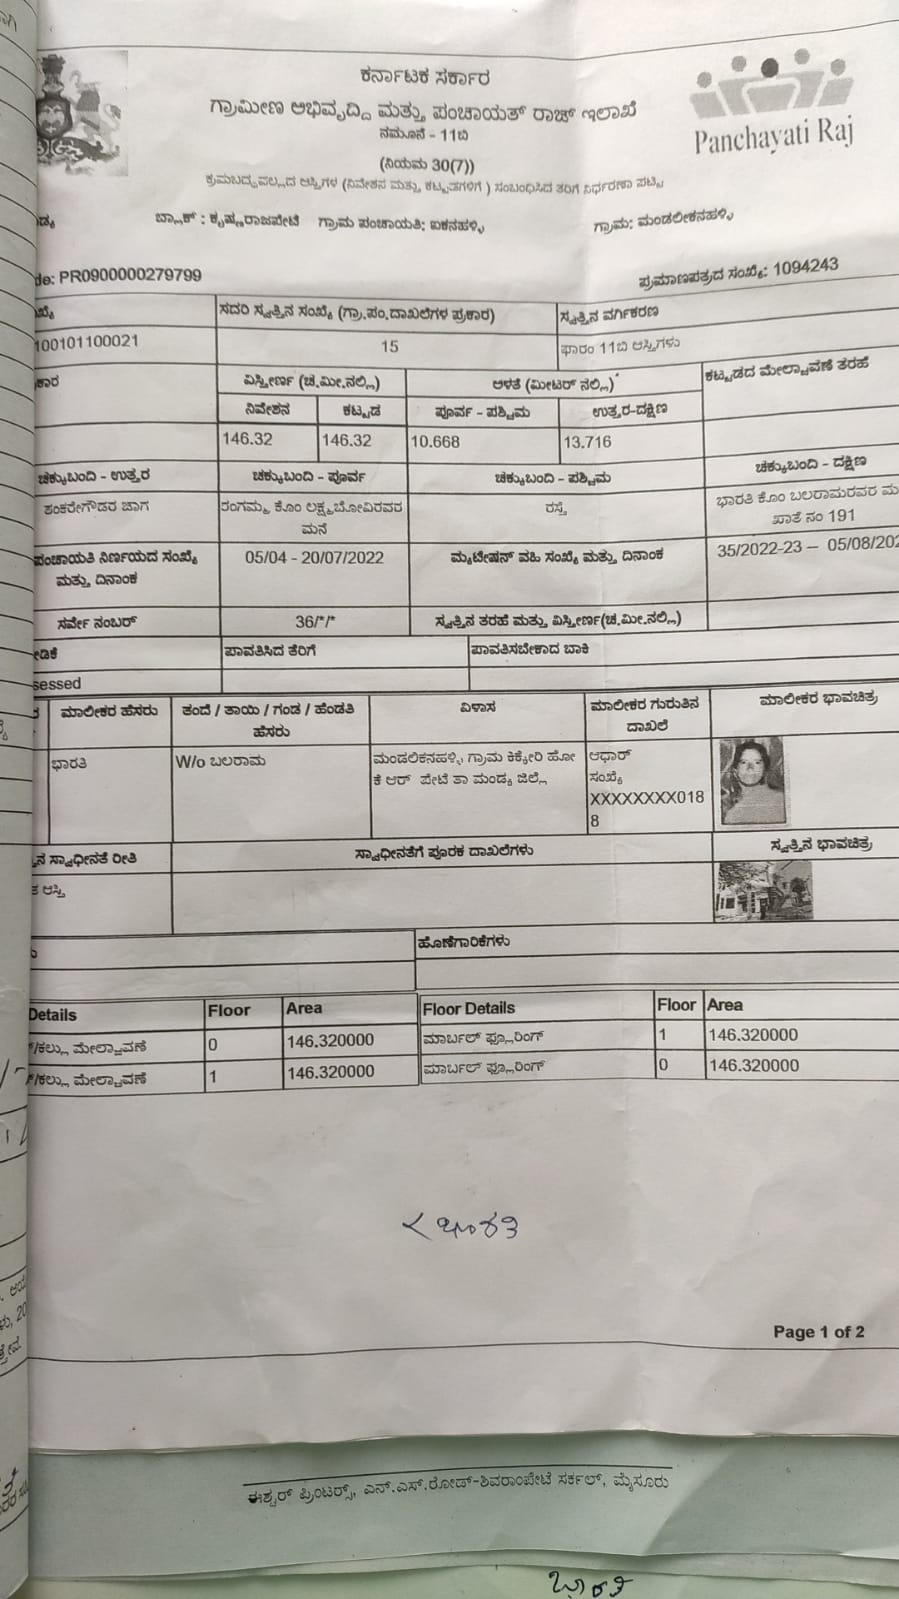 ಕರ್ನಾಟಕ ಸರ್ಕಾರ
ಗ್ರಾಮೀಣ ಅಭಿವೃದ್ಧಿ ಮತ್ತು ಪಂಚಾಯತ್ ರಾಜ್ ಇಲಾಖೆ
ನಮೂನೆ - 11ಬಿ
Panchayati Raj
(ನಿಯಮ 30(7))
ಕ್ರಮಬದ್ಧವಲ್ಲದ ಆಸ್ತಿಗಳ (ನಿವೇಶನ ಮತ್ತು ಕಟ್ಟಡಗಳಿಗೆ ) ಸಂಬಂಧಿಸಿದ ತೆರಿಗೆ ನಿರ್ಧರಣಾ ಪಟ್ಟಿ
ಬ್ಲಾಕ್ : ಕೃಷ್ಣರಾಜಪೇಟೆ ಗ್ರಾಮ ಪಂಚಾಯತಿ: ಐಕನಹಳ್ಳಿ ಗ್ರಾಮ: ಮಂಡಲೀಕನಹಳ್ಳಿ
de: PR0900000279799 ಪ್ರಮಾಣಪತ್ರದ ಸಂಖ್ಯೆ: 1094243
ಖ್ಯೆ ಸದರಿ ಸ್ವತ್ತಿನ ಸಂಖ್ಯೆ (ಗ್ರಾ.ಪಂ.ದಾಖಲೆಗಳ ಪ್ರಕಾರ) ಸ್ವತ್ತಿನ ವರ್ಗೀಕರಣ
100101100021 15 ಫಾರಂ 11ಬಿ ಆಸ್ತಿಗಳು
ಕಾರ ವಿಸ್ತೀರ್ಣ (ಚ.ಮೀ.ನಲ್ಲಿ) ಅಳತೆ (ಮೀಟರ್ ನಲ್ಲಿ) ಕಟ್ಟಡದ ಮೇಲ್ಛಾವಣೆ ತರಹೆ
ನಿವೇಶನ ಕಟ್ಟಡ ಪೂರ್ವ - ಪಶ್ಚಿಮ ಉತ್ತರ-ದಕ್ಷಿಣ
146.32 146.32 10.668 13.716
ಚಕ್ಕುಬಂದಿ - ಉತ್ತರ ಚಕ್ಕುಬಂದಿ - ಪೂರ್ವ ಚಕ್ಕುಬಂದಿ - ಪಶ್ಚಿಮ ಚಕ್ಕುಬಂದಿ - ದಕ್ಷಿಣ
ಶಂಕರೇಗೌಡರ ಜಾಗ ರಂಗಮ್ಮ ಕೊಂ ಲಕ್ಷ್ಮಬೋವಿರವರ ರಸ್ತೆ ಭಾರತಿ ಕೊಂ ಬಲರಾಮರವರ ಮ
ಮನೆ ಖಾತೆ ನಂ 191
ಪಂಚಾಯತಿ ನಿರ್ಣಯದ ಸಂಖ್ಯೆ 05/04 - 20/07/2022 ಮ್ಯುಟೇಷನ್ ವಹಿ ಸಂಖ್ಯೆ ಮತ್ತು ದಿನಾಂಕ 35/2022-23 – 05/08/202
ಮತ್ತು ದಿನಾಂಕ
ಸರ್ವೇ ನಂಬರ್ 36/*/* ಸ್ವತ್ತಿನ ತರಹೆ ಮತ್ತು ವಿಸ್ತೀರ್ಣ(ಚ.ಮೀ.ನಲ್ಲಿ)
ಡಿಕೆ ಪಾವತಿಸಿದ ತೆರಿಗೆ ಪಾವತಿಸಬೇಕಾದ ಬಾಕಿ
sessed
ಮಾಲೀಕರ ಹೆಸರು ತಂದೆ / ತಾಯಿ / ಗಂಡ / ಹೆಂಡತಿ ವಿಳಾಸ ಮಾಲೀಕರ ಗುರುತಿನ ಮಾಲೀಕರ ಭಾವಚಿತ್ರ
ಹೆಸರು ದಾಖಲೆ
ಭಾರತಿ W/o ಬಲರಾಮ ಮಂಡಲಿಕನಹಳ್ಳಿ ಗ್ರಾಮ ಕಿಕ್ಕೇರಿ ಹೋ ಆಧಾರ್
ಕೆ ಆರ್ ಪೇಟೆ ತಾ ಮಂಡ್ಯ ಜಿಲ್ಲೆ ಸಂಖ್ಯೆ
XXXXXXXX018
8
ನ ಸ್ವಾಧೀನತೆ ರೀತಿ ಸ್ವಾಧೀನತೆಗೆ ಪೂರಕ ದಾಖಲೆಗಳು ಸ್ವತ್ತಿನ ಭಾವಚಿತ್ರ
ತ ಆಸ್ತಿ
ಹೊಣೆಗಾರಿಕೆಗಳು
Details Floor Area Floor Details Floor Area
/ಕಲ್ಲು ಮೇಲ್ಛಾವಣೆ 0 146.320000 ಮಾರ್ಬಲ್ ಫ್ಲೂರಿಂಗ್ 1 146.320000
/ಕಲ್ಲು ಮೇಲ್ಛಾವಣೆ 1 146.320000 ಮಾರ್ಬಲ್ ಫ್ಲೂರಿಂಗ್ 0 146.320000
ಭಾರತಿ
Page 1 of 2
ಈಶ್ವರ್ ಪ್ರಿಂಟರ್ಸ್, ಎನ್.ಎಸ್.ರೋಡ್-ಶಿವರಾಂಪೇಟೆ ಸರ್ಕಲ್, ಮೈಸೂರು
ಭಾರತಿ